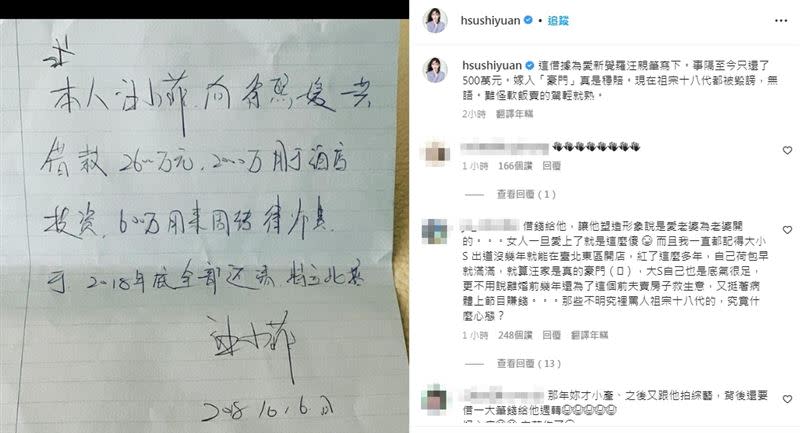 本人汪小菲,向徐熙媛女士
借款2600万元,2000万用于酒店
投资,600万用来周转
于2018年底全部还清,特立此
汪小菲
hsushiyuan
追蹤
hsushiyuan 這借據為愛新覺羅汪親筆寫下。事隔至今只還了
500萬元,嫁入「豪門」真是穩賠。現在祖宗十八代都被毀謗,無
語。難怪軟飯賣的駕輕就熟。
2小時 翻譯年糕
1小時 166個讚 回覆
查看回覆(1)
借錢給他,讓他塑造形象說是愛老婆為老婆開
的。。。女人一旦愛上了就是這麼傻 而且我一直都記得大小
S 出道沒幾年就能在臺北東區開店,紅了這麼多年,自己荷包早
就滿滿,就算汪家是真的豪門(口),大S自己也是底氣很足,
更不用說離婚前幾年還為了這個前夫賣房子救生意,又挺著病
體上節目賺錢。。。那些不明究裡罵人祖宗十八代的,究竟什
麼心態?
1小時 248個讚 回覆 翻譯年糕
查看回覆(13)
那年妳才小產、之後又跟他拍綜藝,背後還要
借一大筆錢給他週轉